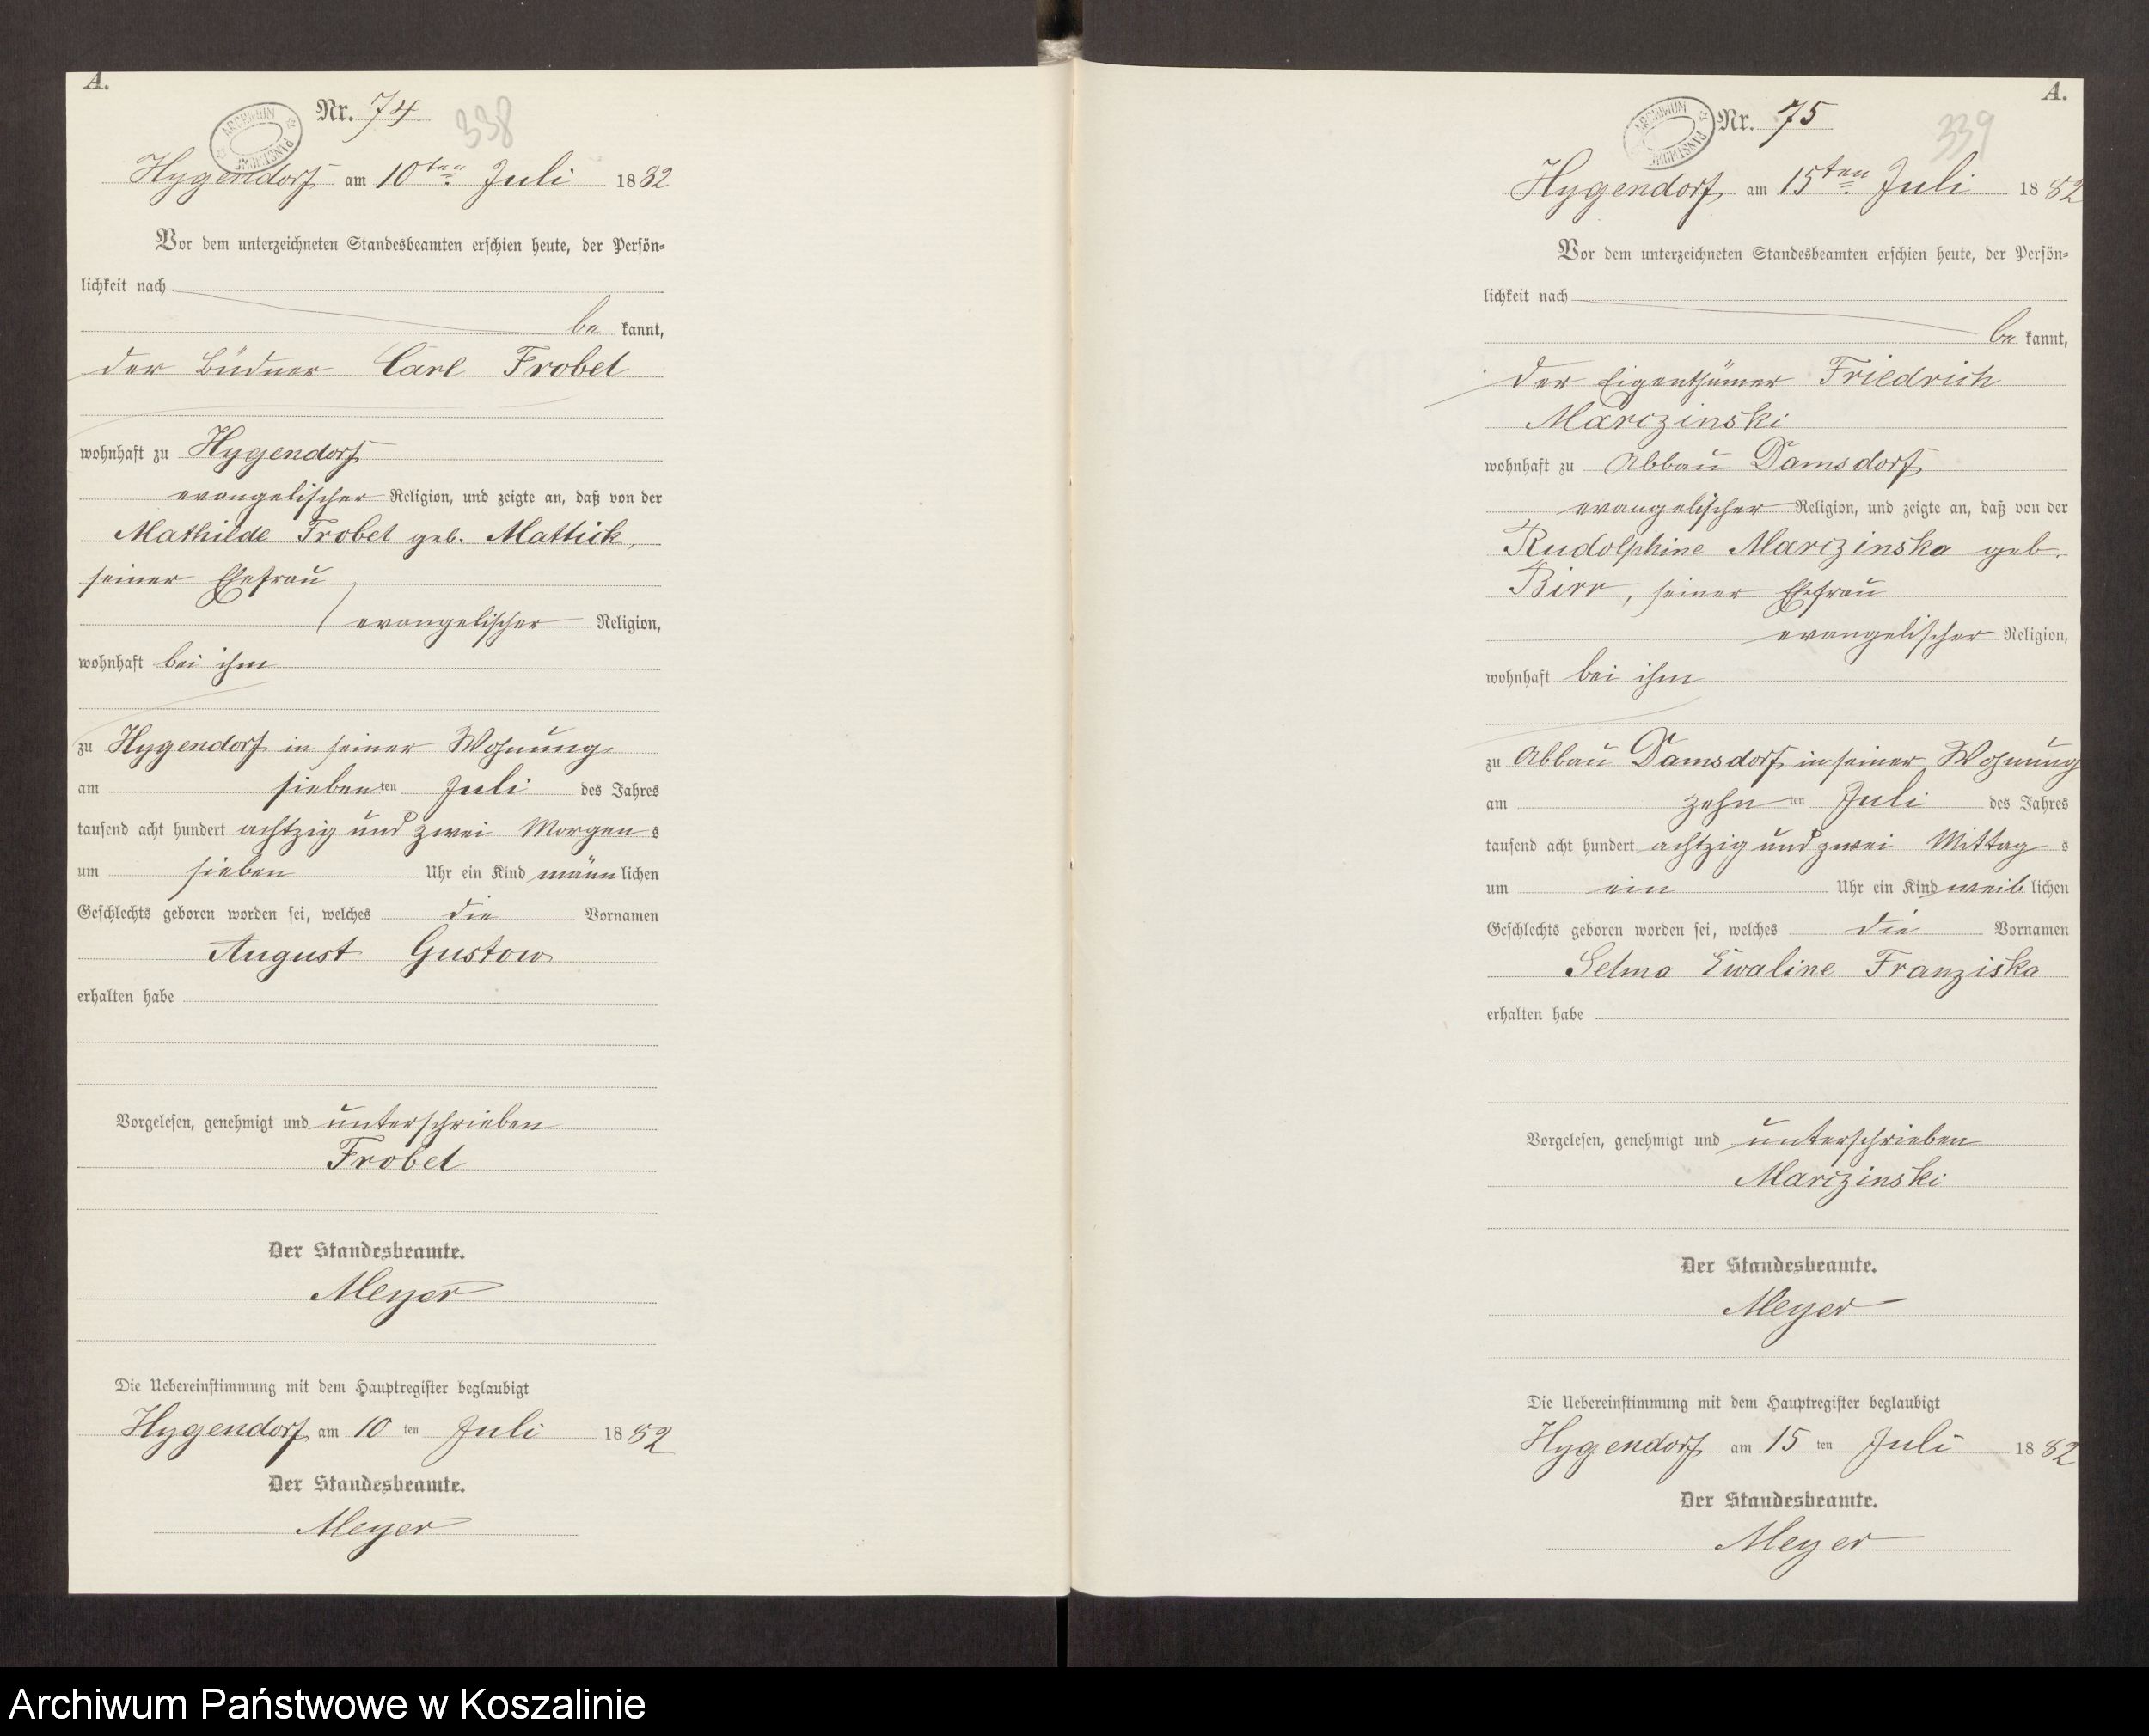 A.
Nr. 74.
338
ARCHIWUM PAŃSTWOWE
Hygendorf am 10ten Juli 1882
Vor dem unterzeichneten Standesbeamten erschien heute, der Persön-
lichkeit nach
be kannt,
der Büdner Carl Frobel
wohnhaft zu Hygendorf
evangelischer Religion, und zeigte an, daß von der
Mathilde Frobel geb. Mattick,
seiner Ehefrau
evangelischer Religion,
wohnhaft bei ihm
zu Hygendorf in seiner Wohnung
am siebenten Juli des Jahres
tausend acht hundert achtzig und zwei Morgens
um sieben Uhr ein Kind männlichen
Geschlechts geboren worden sei, welches die Vornamen
August Gustav
erhalten habe
Vorgelesen, genehmigt und unterschrieben
Frobel
Der Standesbeamte.
Meyer
Die Uebereinstimmung mit dem Hauptregister beglaubigt
Hygendorf am 10 ten Juli 1882
Der Standesbeamte.
Meyer
A.
Nr. 75
339
ARCHIWUM PAŃSTWOWE
Hygendorf am 15ten Juli 1882
Vor dem unterzeichneten Standesbeamten erschien heute, der Persön-
lichkeit nach
be kannt,
der Eigenthümer Friedrich
Marczinski
wohnhaft zu Abbau Damsdorf
evangelischer Religion, und zeigte an, daß von der
Rudolphine Marczinska geb.
Birr, seiner Ehefrau
evangelischer Religion,
wohnhaft bei ihm
zu Abbau Damsdorf in seiner Wohnung
am zehn ten Juli des Jahres
tausend acht hundert achtzig und zwei Mittag s
um ein Uhr ein Kind weiblichen
Geschlechts geboren worden sei, welches die Vornamen
Selma Ewaline Franziska
erhalten habe
Vorgelesen, genehmigt und unterschrieben
Marczinski
Der Standesbeamte.
Meyer
Die Uebereinstimmung mit dem Hauptregister beglaubigt
Hygendorf am 15 ten Juli 1882
Der Standesbeamte.
Meyer
Archiwum Państwowe w Koszalinie